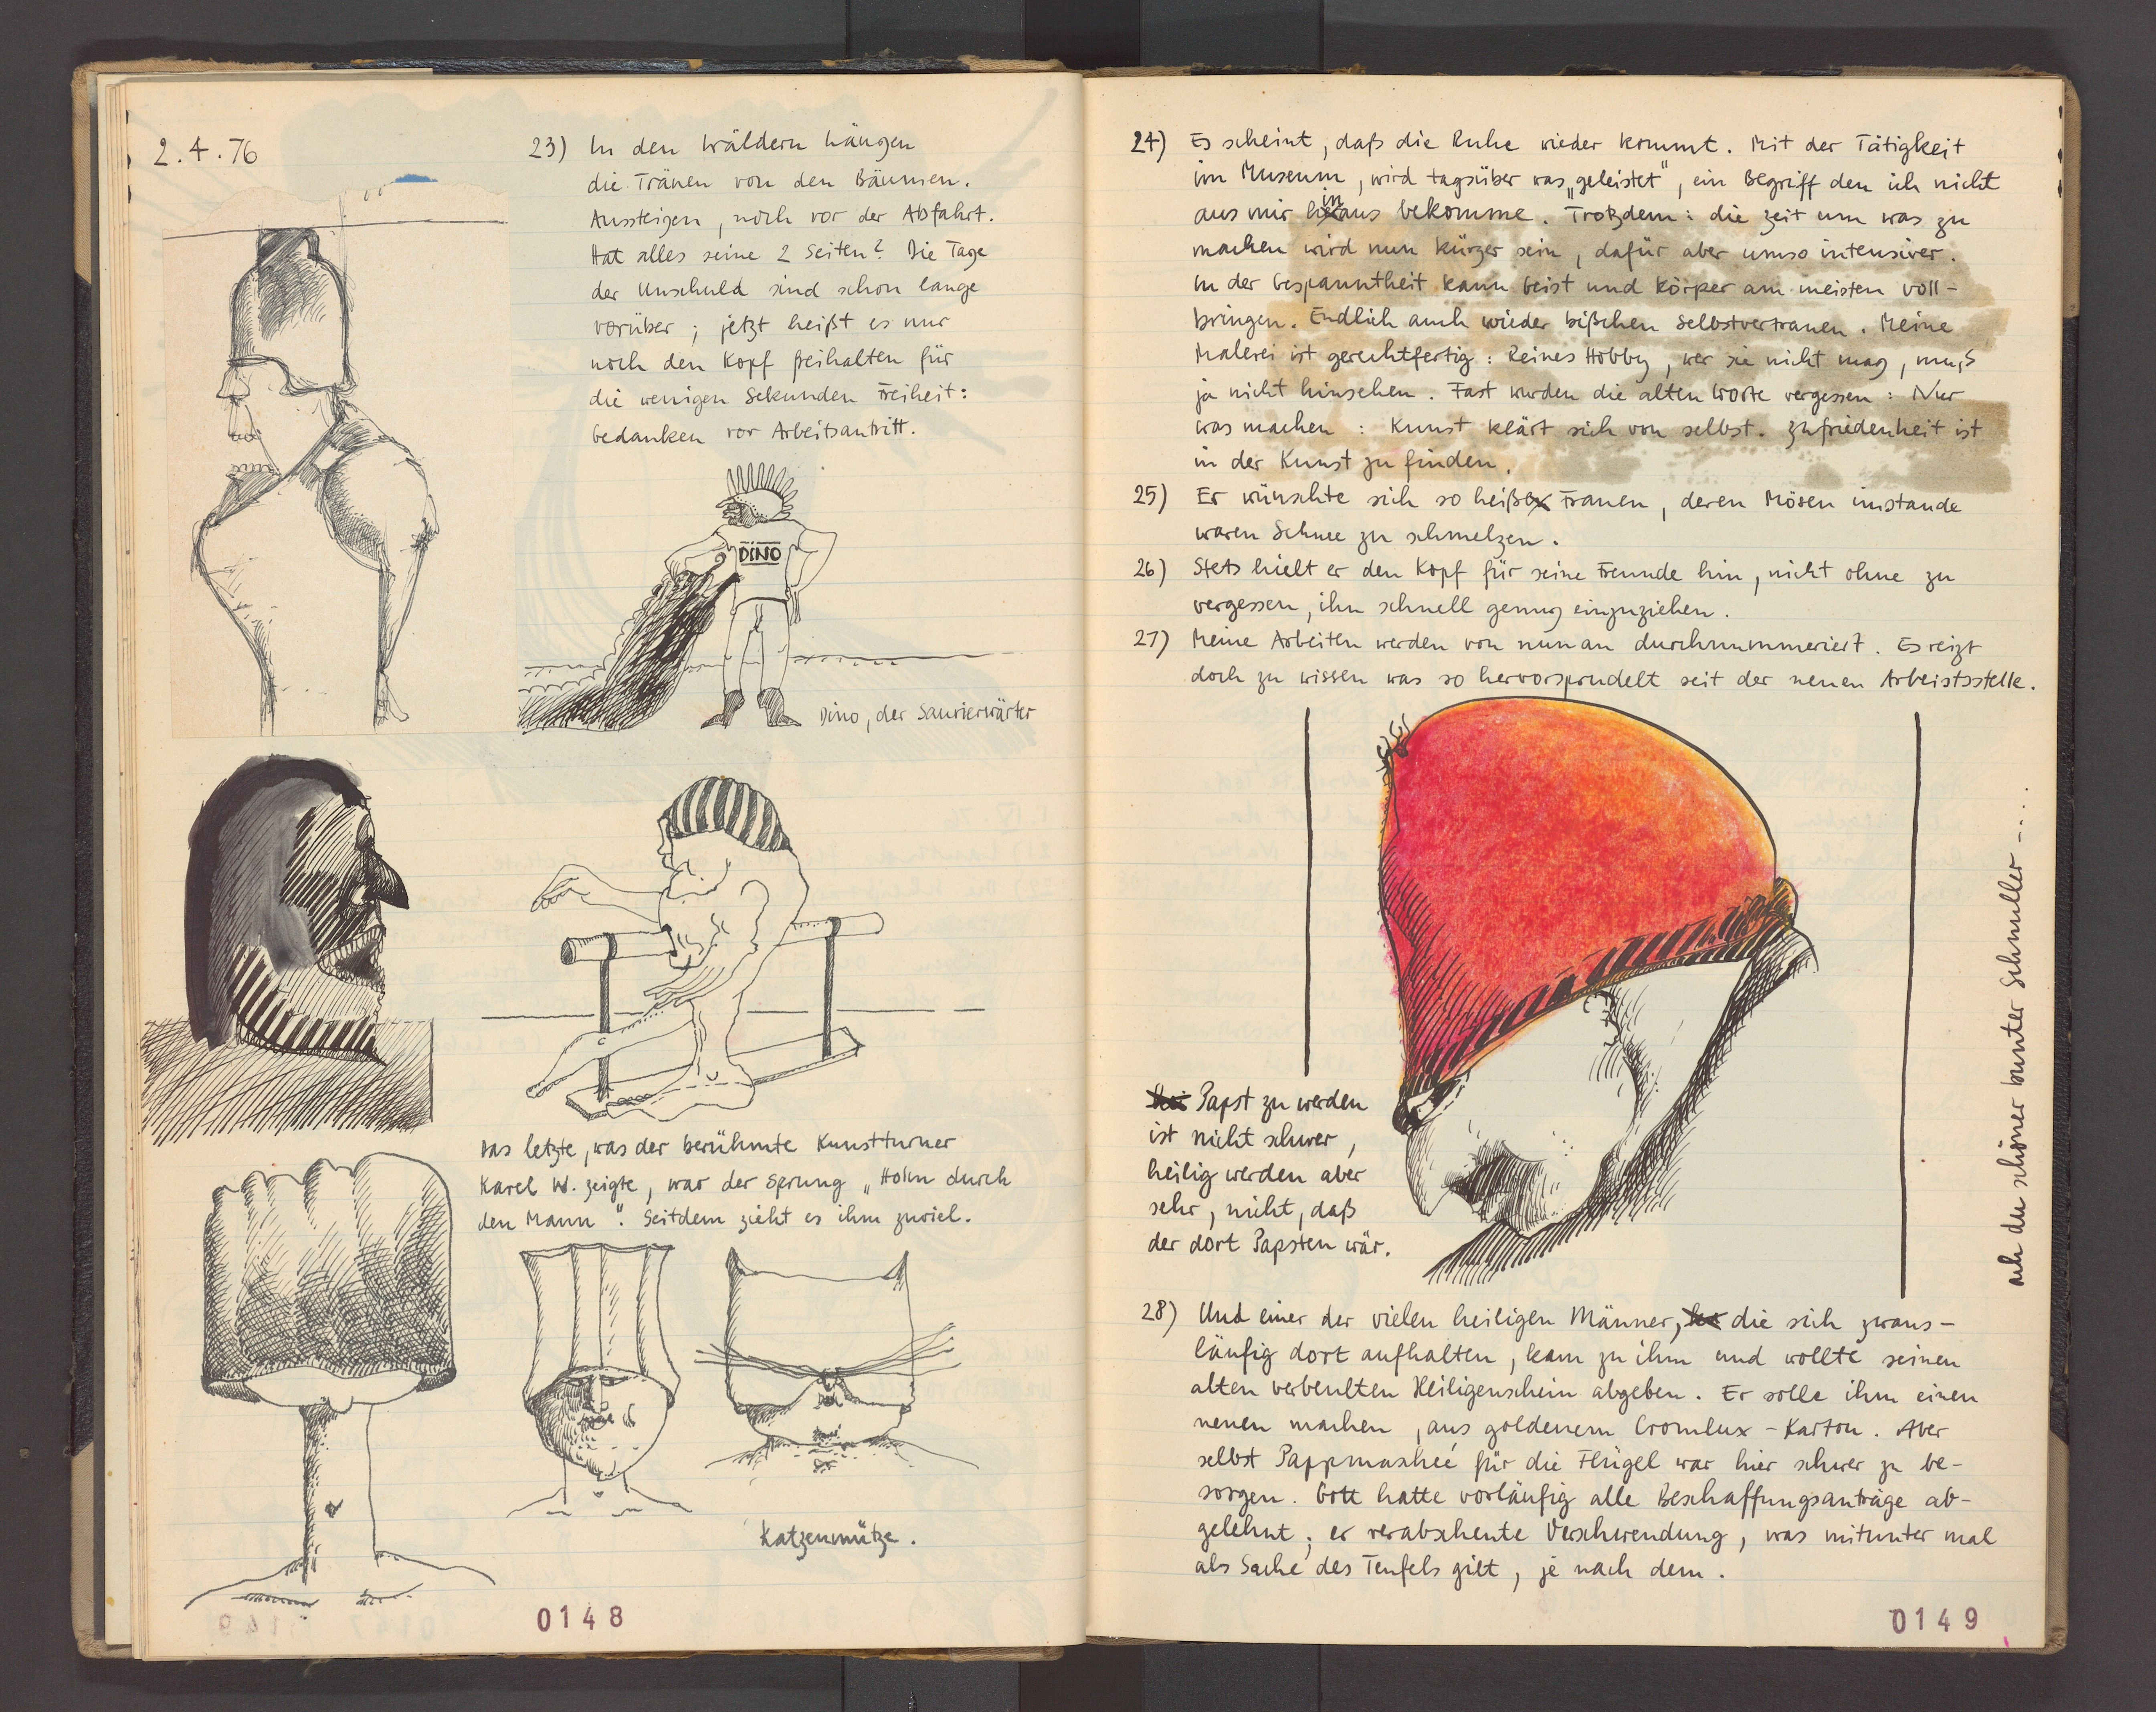 2.4.76
23) In den Wäldern hängen
die Tränen von den Bäumen.
Aussteigen, noch vor der Abfahrt.
Hat alles seine 2 Seiten? Die Tage
der Unschuld sind schon lange
vorüber; jetzt heißt es nur
noch den Kopf freihalten für
die wenigen Sekunden Freiheit:
Gedanken vor Arbeitsantritt.
DINO
Dino, der Saurierwärter
Das letzte, was der berühmte Kunstturner
Karel W. zeigte, war der Sprung „Holm durch
den Mann“. Seitdem zieht es ihm zuviel.
Katzenmütze.
0148
24) Es scheint, daß die Ruhe wieder kommt. Mit der Tätigkeit
im Museum, wird tagsüber was „geleistet“, ein Begriff den ich nicht
aus mir hinaus bekomme. Trotzdem: die Zeit um was zu
machen wird nun kürzer sein, dafür aber umso intensiver.
In der Gespanntheit kann Geist und Körper am meisten voll-
bringen. Endlich auch wieder bißchen Selbstvertrauen. Meine
Malerei ist gerechtfertig: Reines Hobby, wer sie nicht mag, muß
ja nicht hinsehen. Fast wurden die alten Worte vergessen: Nur
was machen: Kunst klärt sich von selbst. Zufriedenheit ist
in der Kunst zu finden.
25) Er wünschte sich so heiße Frauen, deren Mösen imstande
waren Schnee zu schmelzen.
26) Stets hielt er den Kopf für seine Freunde hin, nicht ohne zu
vergessen, ihn schnell genug einzuziehen.
27) Meine Arbeiten werden von nun an durchnummeriert. Es reizt
doch zu wissen was so hervorsprudelt seit der neuen Arbeistsstelle.
Papst zu werden
ist nicht schwer,
heilig werden aber
sehr, nicht, daß
der dort Papsten wär.
ach du schöner bunter Schnuller -....
28) Und einer der vielen heiligen Männer, die sich zwans-
läufig dort aufhalten, kam zu ihm und wollte seinen
alten verbeulten Heiligenschein abgeben. Er solle ihm einen
neuen machen, aus goldenem Cromlux-Karton. Aber
selbst Pappmasheé für die Flügel war hier schwer zu be-
sorgen. Gott hatte vorläufig alle Beschaffungsanträge ab-
gelehnt; er verabscheute Verschwendung, was mitunter mal
als Sache des Teufels gilt, je nach dem.
0149